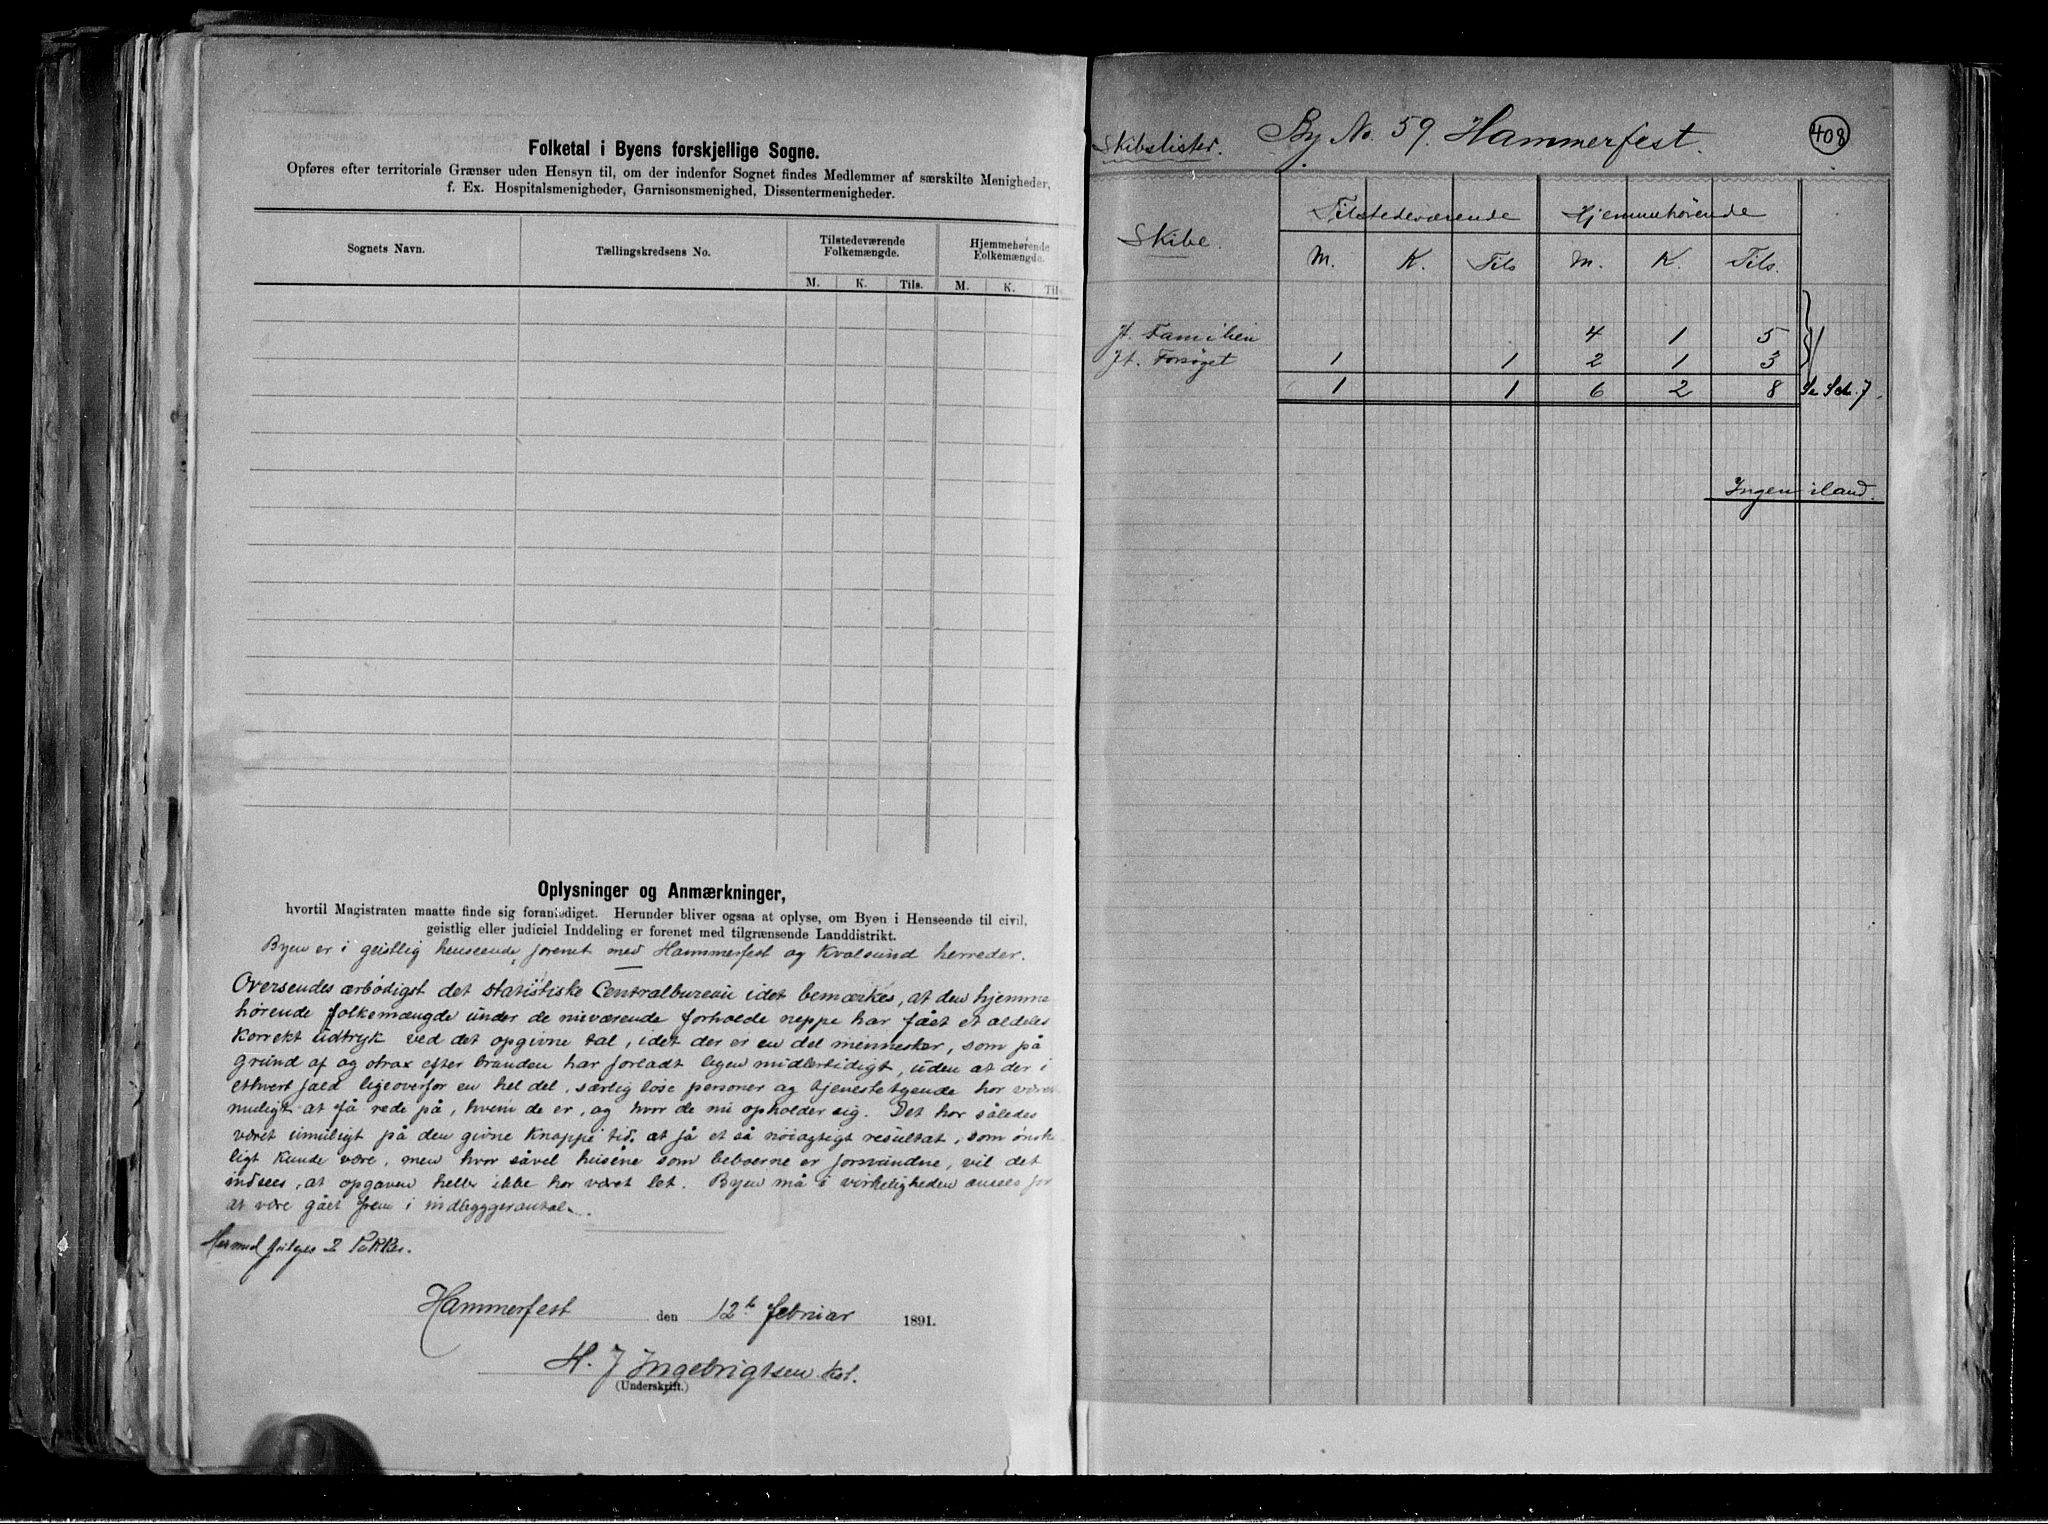 Folketal i Byens forskjellige Sogne.
Opføres efter territoriale Grænser uden Hensyn til, om der indenfor Sognet findes Medlemmer af særskilte Menigheder,
f. Ex. Hospitalsmenigheder, Garnisonsmenighed, Dissentermenigheder.
Sognets Navn. Tællingskredsens No. Tilstedeværende Folkemængde. Hjemmehørende Folkemængde.
M. K. Tils. M. K. Til
Oplysninger og Anmærkninger,
hvortil Magistraten maatte finde sig foranlediget. Herunder bliver ogsaa at oplyse, om Byen i Henseende til civil,
geistlig eller judiciel Inddeling er forenet med tilgrænsende Landdistrikt.
Byen er i geistlig henseende forenet med Hammerfest og Kvalsund herreder.
Oversendes ærbødigst det statistiske Centralbureau idet bemærkes, at den hjemme
hørende folkemængde under de nuværende forholde neppe har fået et aldeles
korrekt udtryk ved det opgivne tal, idet der er en del mennesker, som på
grund af og strax efter branden har forladt byen midlertidigt, uden at der i
ethvert fald ligeoverfor en hel del, særlig løse personer og tjenestetyende har været
muligt at få rede på, hvem de er, og hvor de nu opholder sig. Det har således
været umuligt på den givne knappe tid at få et så nøiagtigt resultat, som ønske
ligt kunde være, men hvor såvel husene som beboerne er forsvundne, vil det
indsees, at opgaven heller ikke har været let. Byen må i virkeligheden ansees for
at være gået frem i indbyggerantal.
Hermed følges 2 Pakker.
Hammerfest den 12te februar 1891.
H. J Ingebrigtsen kst.
(Underskrift.)
Skibslister. By No. 59. Hammerfest. 408
Skibe. Tilstedeværende Hjemmehørende
M. K. Tils M. K. Tils.
Jt. Familien 4 1 5
Jt. Forsøget 1 1 2 1 3
1 1 6 2 8 Se Sch. 7.
Ingen iland.